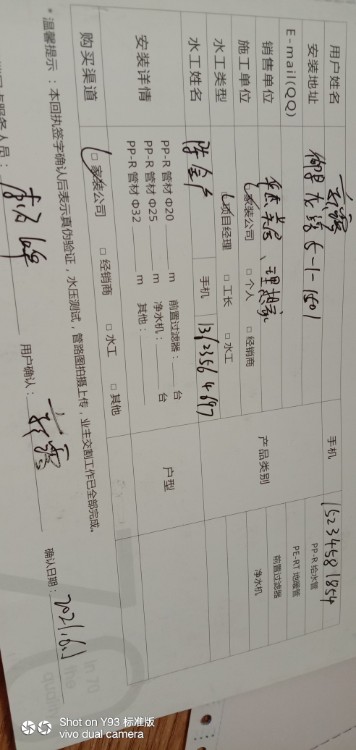 用户姓名 手机 15234581854
安装地址 御景龙湾5-1-1501 PP-R 给水管
E-mail(QQ) PE-RT 地暖管
销售单位 产品类别 前置过滤器
施工单位 家装公司 □ 个人 □ 经销商 净水机
水工类型 项目经理 □ 工长 □ 水工
水工姓名 手机
安装详情 PP-R 管材 Φ20 m 前置过滤器: 台 户型
PP-R 管材 Φ25 m 净水机: 台
PP-R 管材 Φ32 m 其他:
购买渠道 □ 家装公司 □ 经销商 □ 水工 □ 其他
* 温馨提示:本回执签字确认后表示真伪验证,水压测试,管路图拍摄上传,业主交割工作已全部完成。
服务人员: 用户确认: 确认日期: 2021.6.1
Shot on Y93 标准版
vivo dual camera